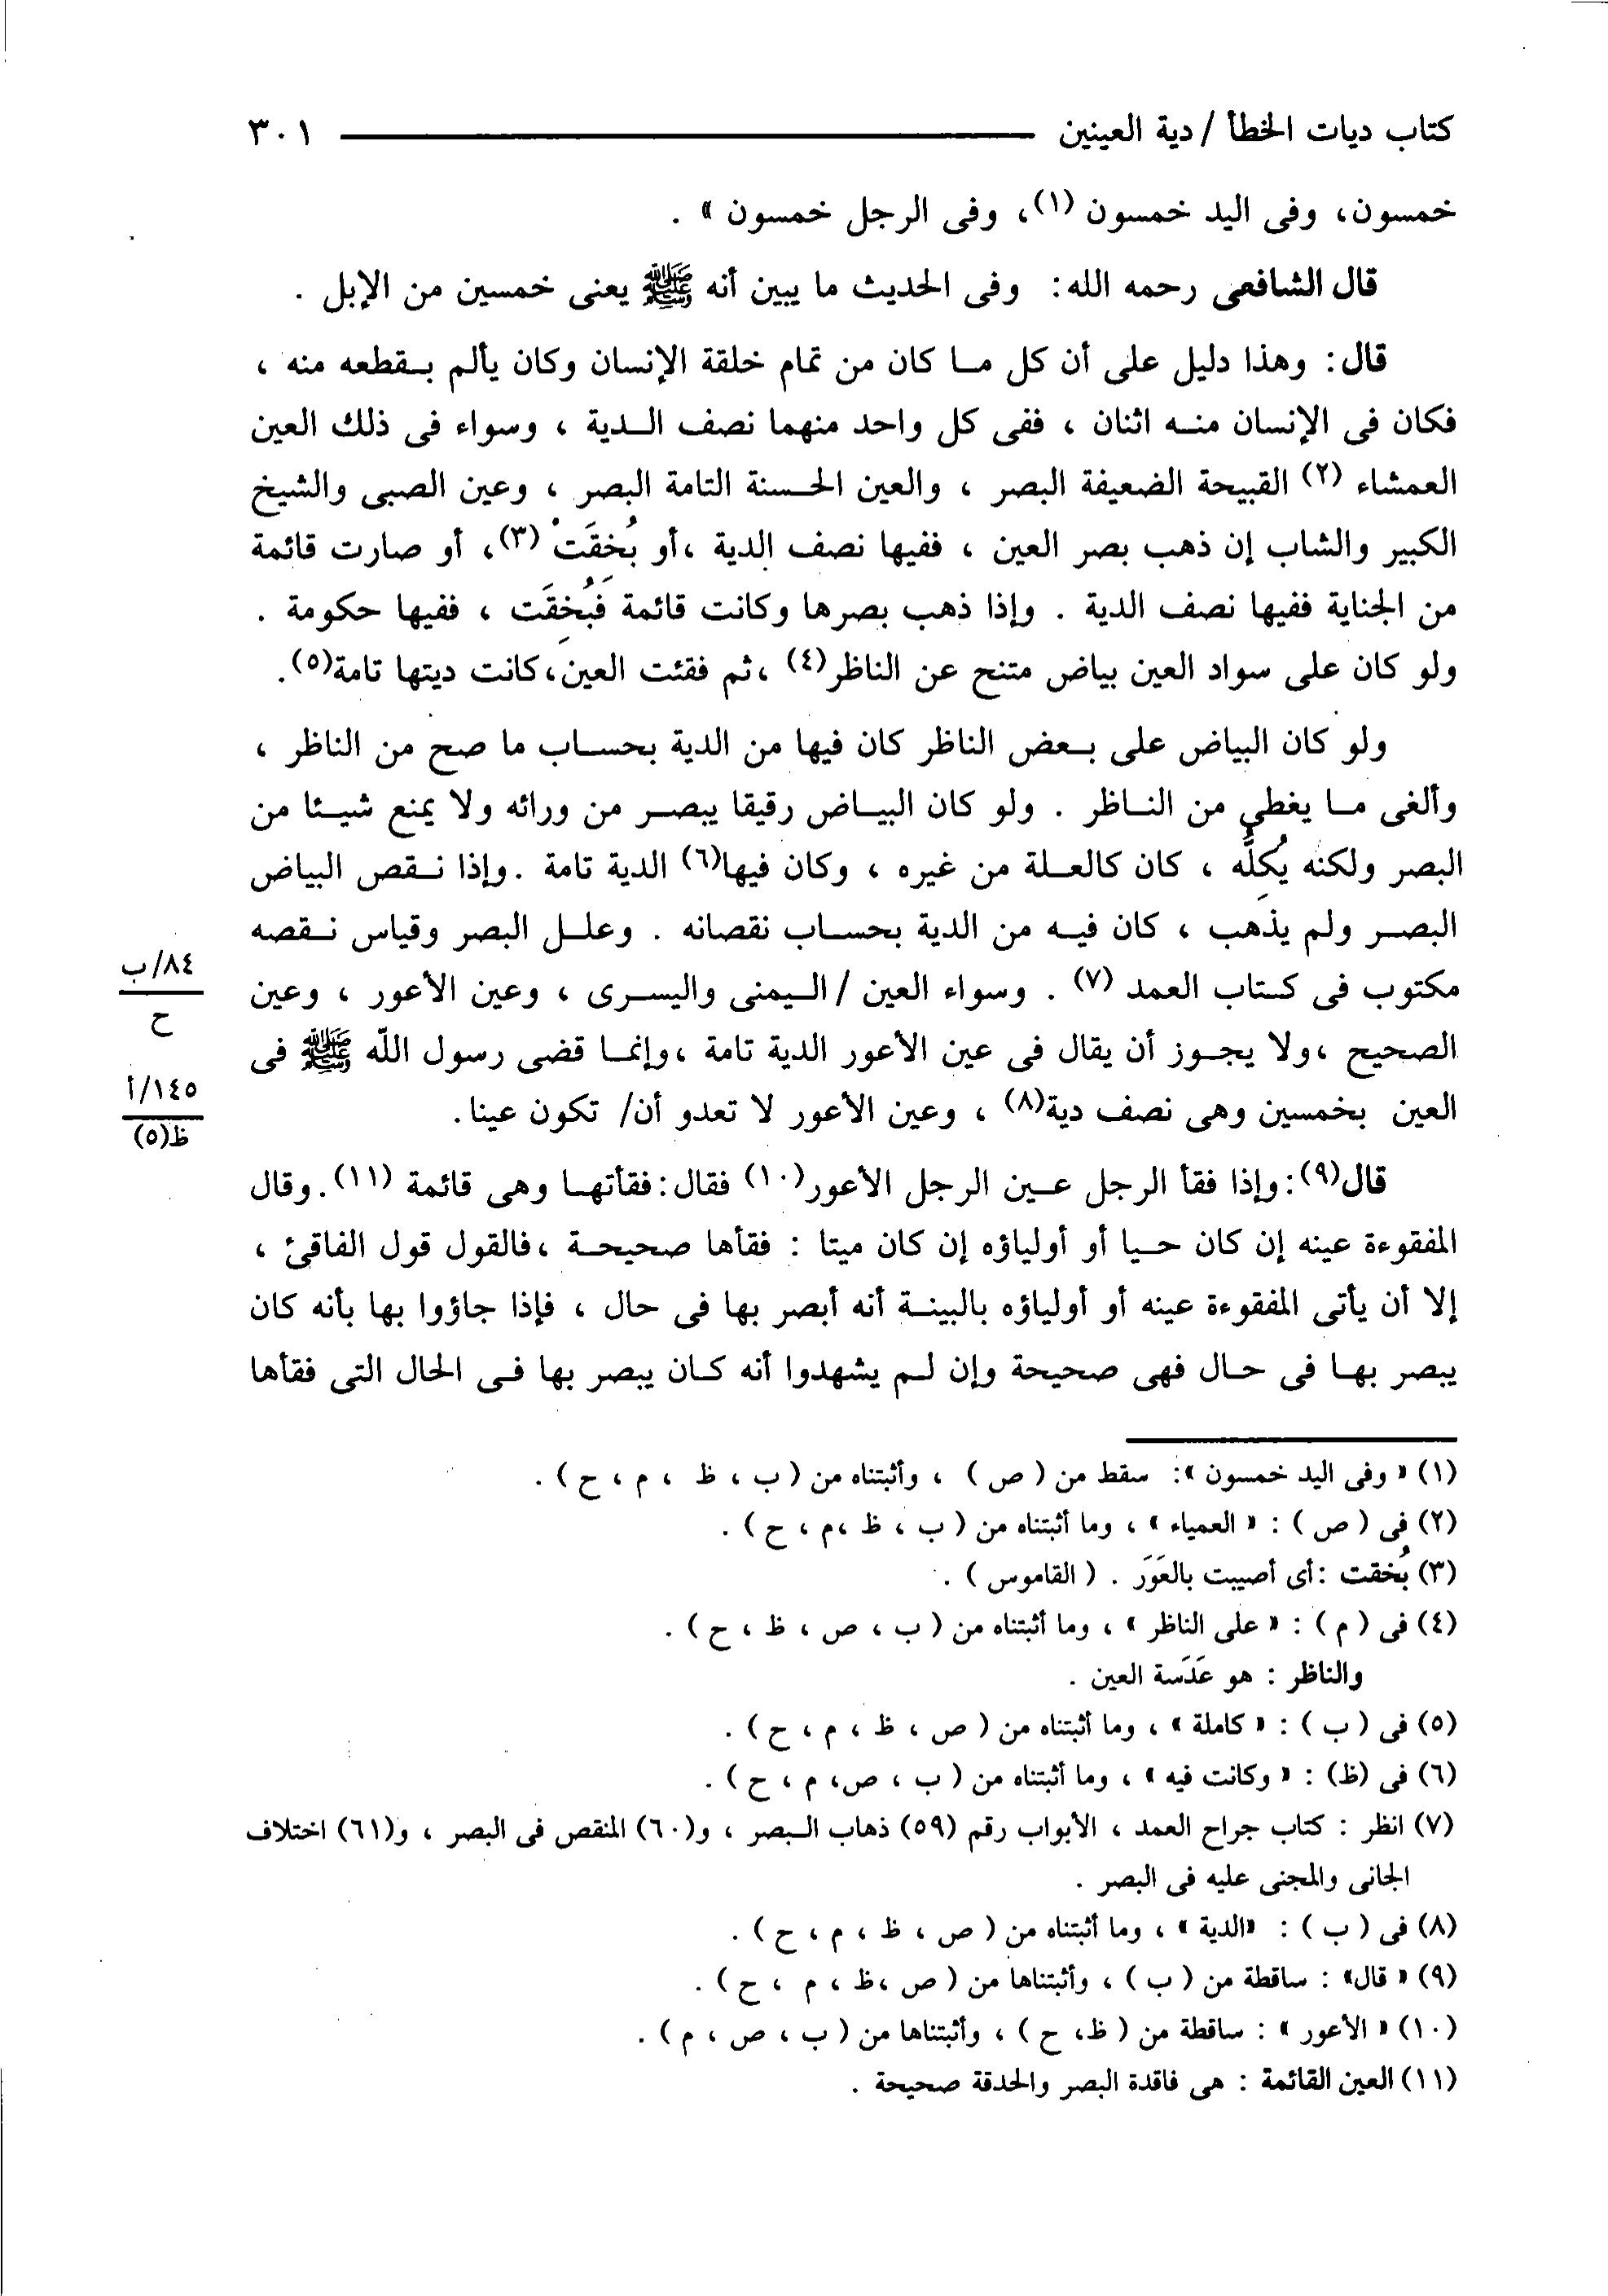 كتاب ديات الخطأ / دية العينين ٣٠١
خمسون، وفى اليد خمسون (١)، وفى الرجل خمسون » .
قال الشافعى رحمه الله: وفى الحديث ما يبين أنه ﷺ يعنى خمسين من الإبل .
قال: وهذا دليل على أن كل ما كان من تمام خلقة الإنسان وكان يألم بقطعه منه ،
فكان فى الإنسان منه اثنان ، ففى كل واحد منهما نصف الدية ، وسواء فى ذلك العين
العمشاء (٢) القبيحة الضعيفة البصر ، والعين الحسنة التامة البصر ، وعين الصبى والشيخ
الكبير والشاب إن ذهب بصر العين ، ففيها نصف الدية ،أو بُخِقَتْ (٣)، أو صارت قائمة
من الجناية ففيها نصف الدية . وإذا ذهب بصرها وكانت قائمة فَبُخِقَت ، ففيها حكومة .
ولو كان على سواد العين بياض متنح عن الناظر(٤) ،ثم فقئت العين،كانت ديتها تامة(٥).
ولو كان البياض على بعض الناظر كان فيها من الدية بحساب ما صح من الناظر ،
وألغى ما يغطى من الناظر . ولو كان البياض رقيقا يبصر من ورائه ولا يمنع شيئا من
البصر ولكنه يُكِلُّه ، كان كالعلة من غيره ، وكان فيها(٦) الدية تامة .وإذا نقص البياض
البصر ولم يذهب ، كان فيه من الدية بحساب نقصانه . وعلل البصر وقياس نقصه
مكتوب فى كتاب العمد (٧) . وسواء العين / اليمنى واليسرى ، وعين الأعور ، وعين
٨٤/ب
ح
الصحيح ،ولا يجوز أن يقال فى عين الأعور الدية تامة ،وإنما قضى رسول الله ﷺ فى
العين بخمسين وهى نصف دية(٨) ، وعين الأعور لا تعدو أن/ تكون عينا.
١٤٥/أ
ظ(٥)
قال(٩): وإذا فقأ الرجل عين الرجل الأعور(١٠) فقال: فقأتها وهى قائمة (١١). وقال
المفقوءة عينه إن كان حيا أو أولياؤه إن كان ميتا : فقأها صحيحة ،فالقول قول الفاقئ ،
إلا أن يأتى المفقوءة عينه أو أولياؤه بالبينة أنه أبصر بها فى حال ، فإذا جاؤوا بها بأنه كان
يبصر بها فى حال فهى صحيحة وإن لم يشهدوا أنه كان يبصر بها فى الحال التى فقأها
(١) « وفى اليد خمسون »: سقط من ( ص ) ، وأثبتناه من ( ب ، ظ ، م ، ح ) .
(٢) فى ( ص ) : « العمياء » ، وما أثبتناه من ( ب ، ظ ،م ، ح ) .
(٣) بُخقت : أى أصيبت بالعَوَر . ( القاموس ) .
(٤) فى ( م ) : « على الناظر » ، وما أثبتناه من ( ب ، ص ، ظ ، ح ) .
والناظر : هو عَدَسة العين .
(٥) فى ( ب ) : « كاملة » ، وما أثبتناه من ( ص ، ظ ، م ، ح ) .
(٦) فى (ظ) : « وكانت فيه » ، وما أثبتناه من ( ب ، ص، م ، ح ) .
(٧) انظر : كتاب جراح العمد ، الأبواب رقم (٥٩) ذهاب البصر ، و(٦٠) المنقص فى البصر ، و(٦١) اختلاف
الجانى والمجنى عليه فى البصر .
(٨) فى ( ب ) : «الدية » ، وما أثبتناه من ( ص ، ظ ، م ، ح ) .
(٩) « قال» : ساقطة من ( ب ) ، وأثبتناها من ( ص ،ظ ، م ، ح ) .
(١٠) « الأعور » : ساقطة من ( ظ، ح ) ، وأثبتناها من ( ب ، ص ، م ) .
(١١) العين القائمة : هى فاقدة البصر والحدقة صحيحة .